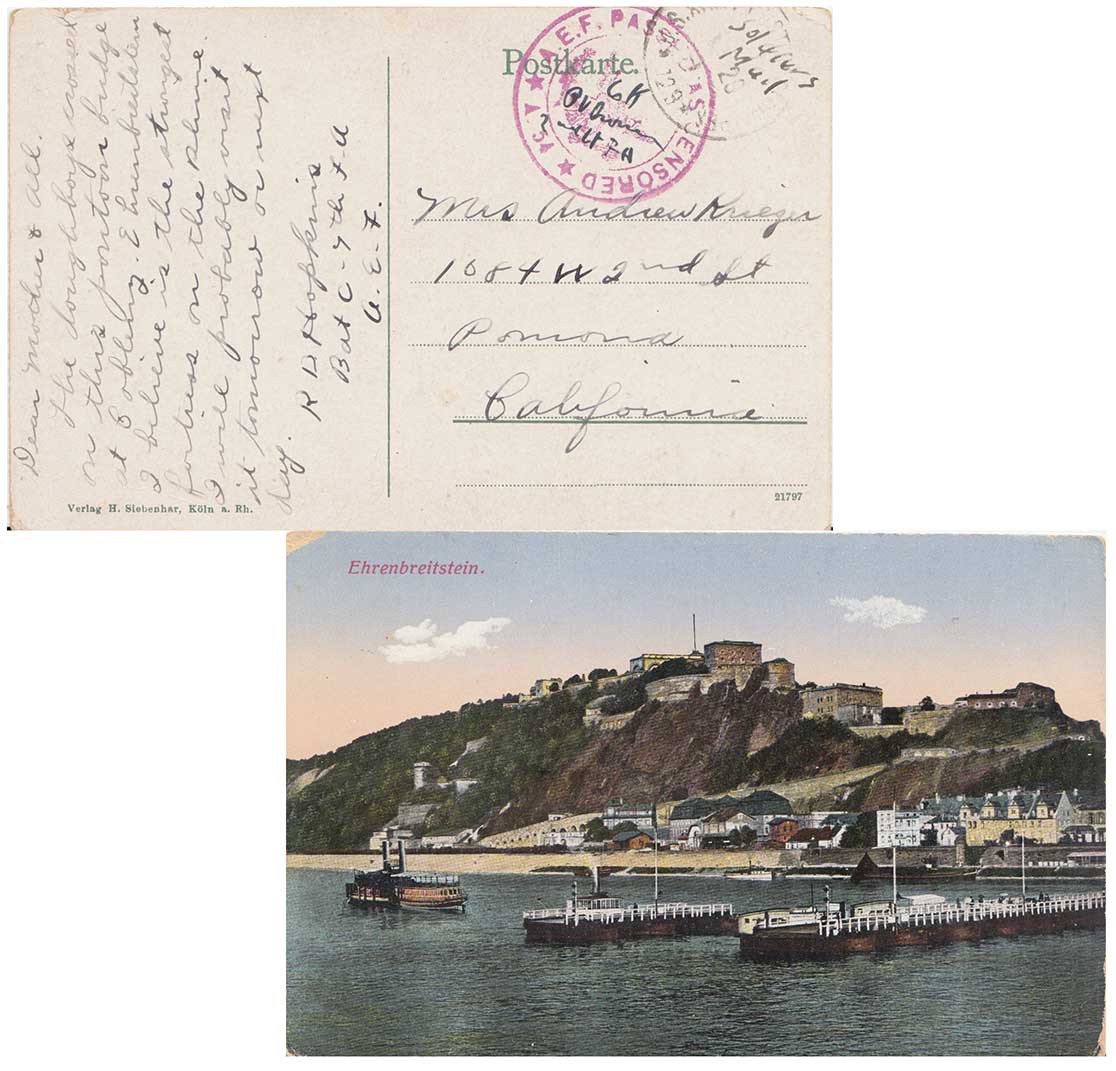 Postkarte.
A.E.F. PASSED AS CENSORED
Soldiers
Mail
Mrs Andrew Krieger
1084 W 2nd St
Pomona
California
21797
Dear Mother & all.
The doughboys crossed
on this pontoon bridge
at Coblenz. Ehrenbreitstein
I believe is the strongest
fortress on the Rhine.
I will probably visit
it tomorrow or next
day.
R D Hopkins
Bat C-7th F A
A. E. F.
Verlag H. Siebenhar, Köln a. Rh.
Ehrenbreitstein.